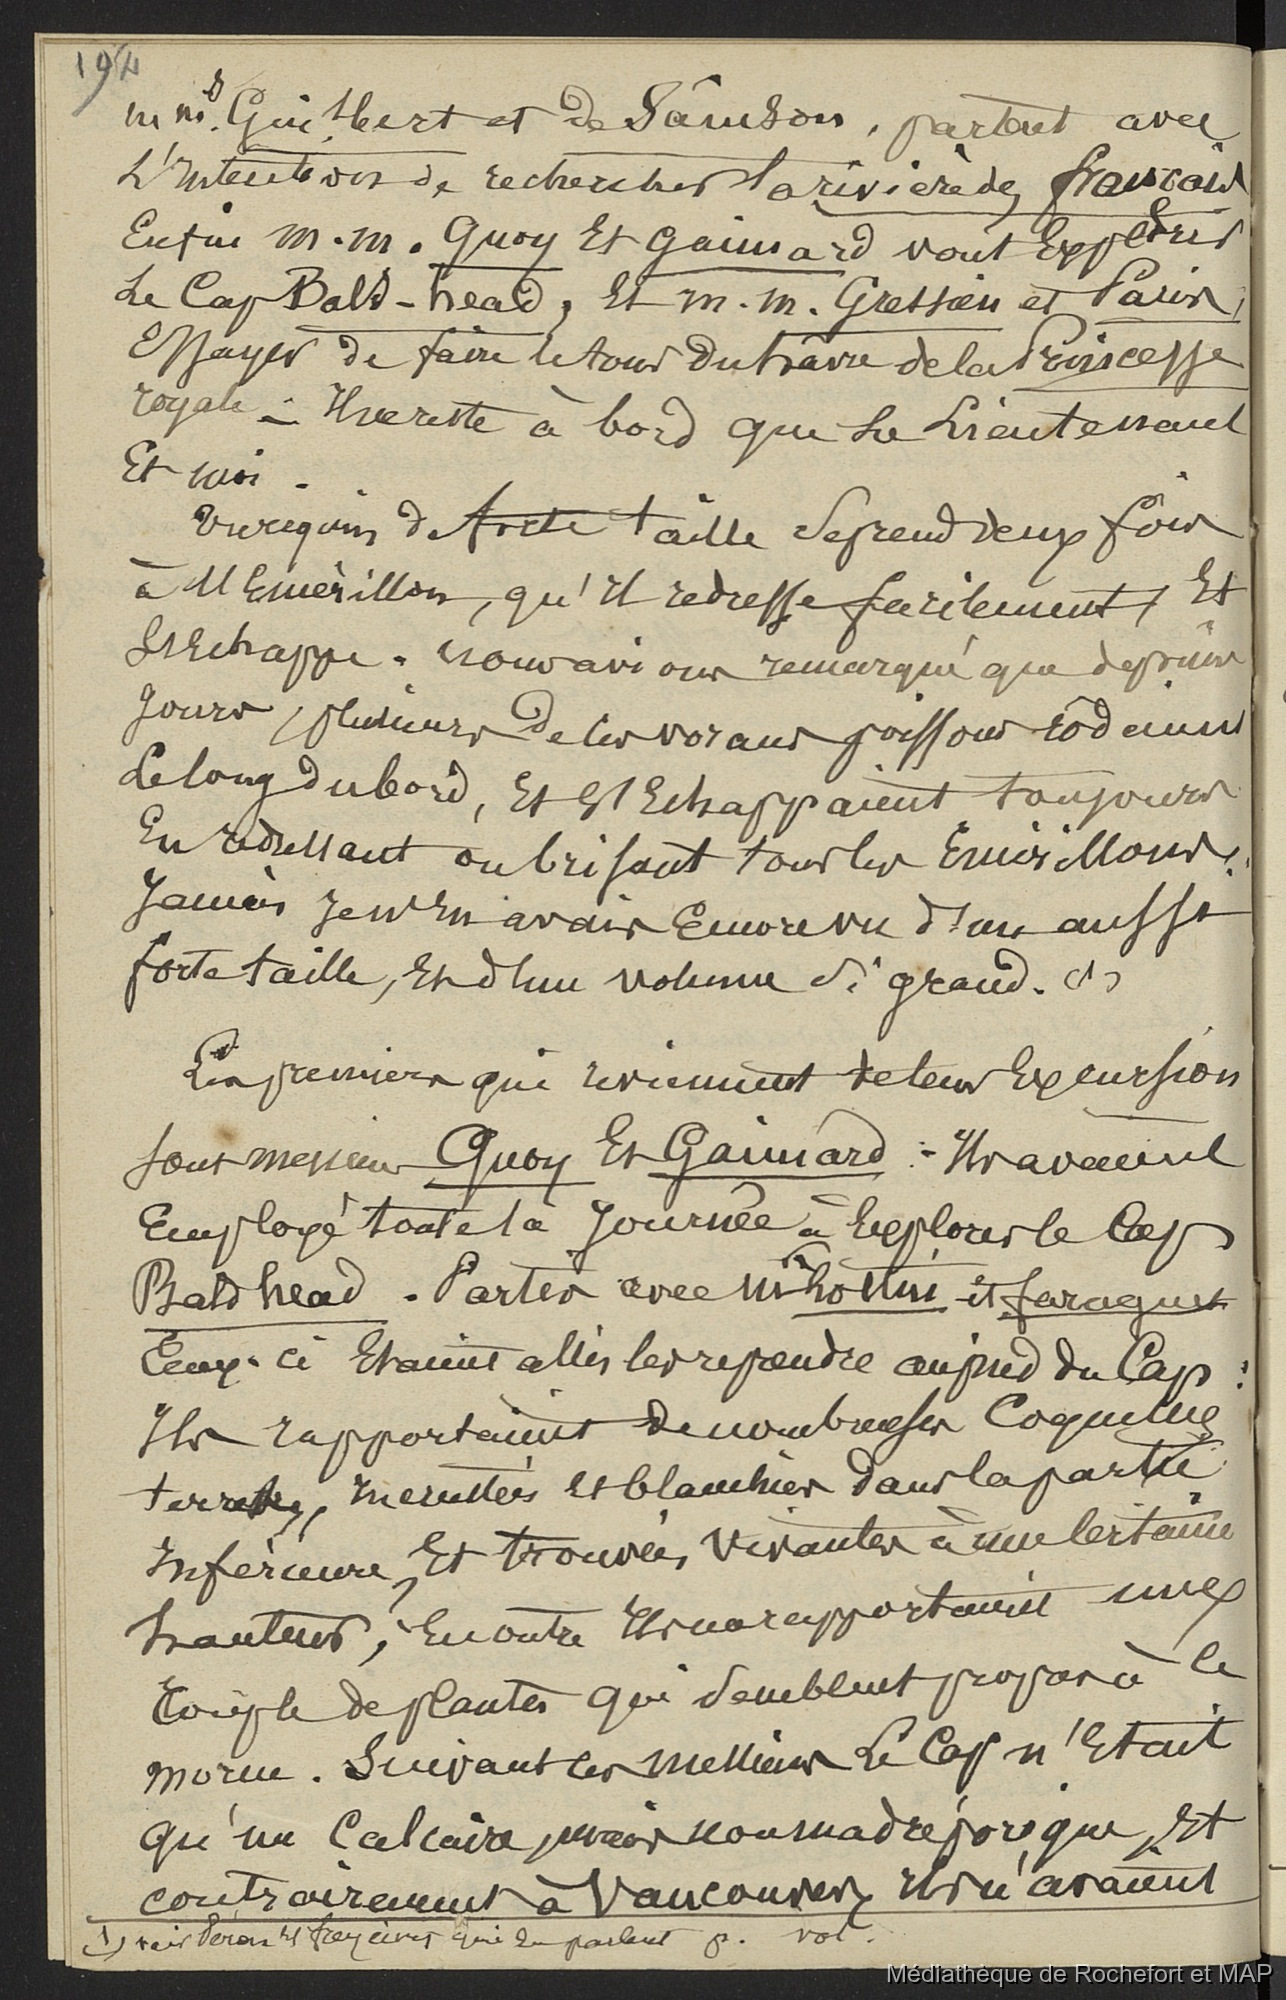 194
m ms. Guilbert et de Sainson, partent avec
L'Intention de rechercher la rivière des français
Enfin m.m. Quoy Et Gaimard vont Explorer
Le Cap Bald-head, Et m.m. Gressien et Paris,
Essayer de faire le tour du havre de la Princesse
royale - Il ne reste à bord que Le Lieutenant
Et moi.
Un requin de forte taille Se prend deux fois
à l'Emérillon, qu'Il redresse facilement, Et
S'Echappe. nous avions remarqué que depuis
Jours, plusieurs de ces voraces poissons rôdaient
Le long du bord, Et S'Echappaient toujours
En redressant ou brisant tous les Emérillons.
Jamais Je n'En avais Encore vu d'une aussi
forte taille, Et d'un volume Si grand. (1)
Les premiers qui reviennent de leur Excursion
Sont messieurs Quoy Et Gaimard : Ils avaient
Employé toute la Journée à Explorer le Cap
Bald head. Partis avec mrs Lottin et faraguet
Ceux-ci Etaient allés les reprendre au pied du Cap :
Ils rapportaient de nombreuses Coquilles
terrestres, Incrustées Et blanchies dans la partie
Inférieure, Et trouvées vivantes à une Certaine
hauteur ; En outre Ils nous rapportaient une
Couple de plantes qui Semblent propres à ce
morne. Suivant ces messieurs Le Cap n'Etait
qu'un Calcaire, mais non madréporique, Et
contrairement à Vancouver, Ils n'avaient
(1) voir Péron Et freycinet qui En parlent p. vol.
Médiathèque de Rochefort et MAP